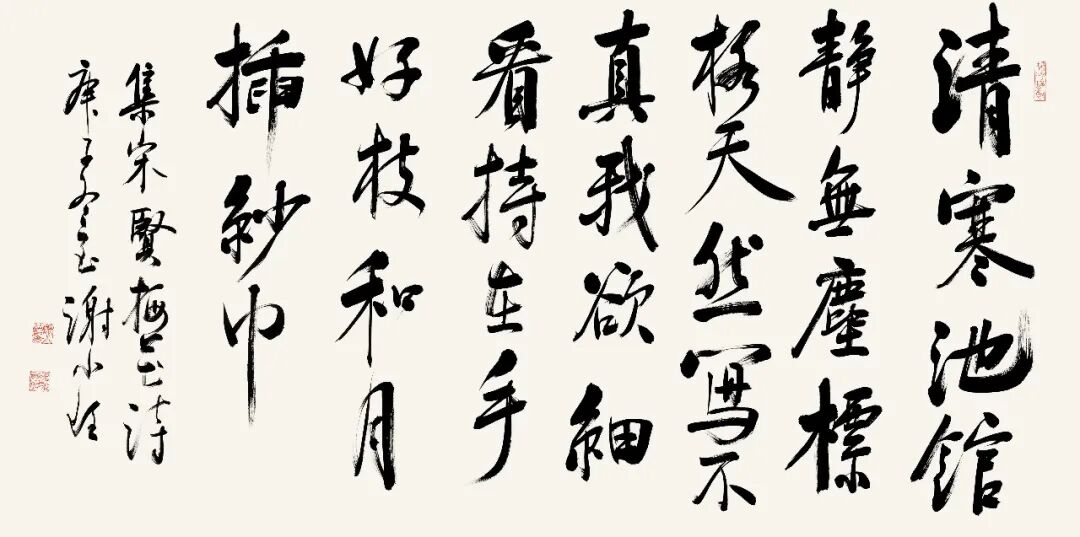 清寒池館
靜無塵標
格天然寫不
真我欲細
看持在手
好枝和月
插紗巾
集宋賢梅花詩
庚子冬玉謝小